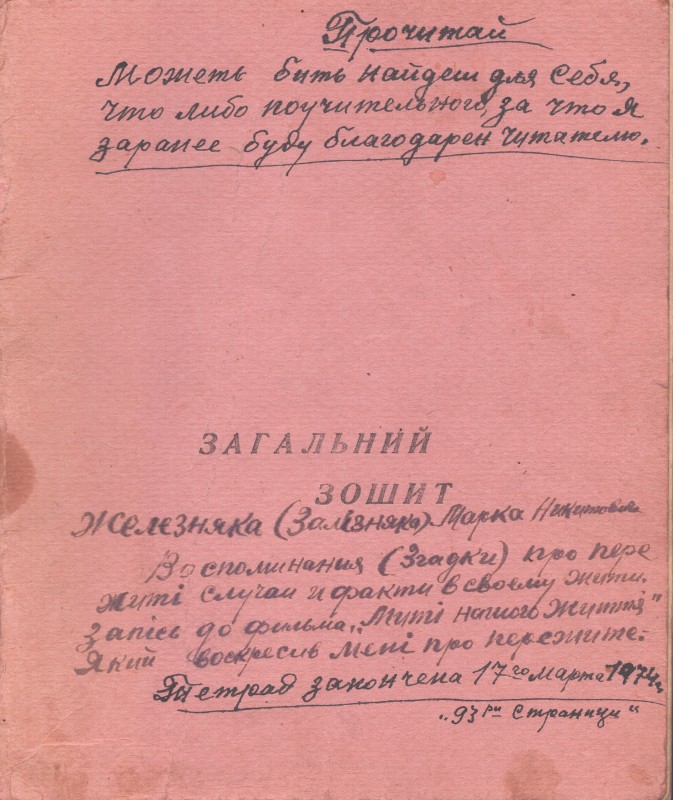 Прочитай
Может быть найдеш для себя,
что либо поучительного, за что я
заранее буду благодарен читателю.
ЗАГАЛЬНИЙ
ЗОШИТ
Железняка (Залізняка) Марка Никитовича
Воспоминания (Згадки) про пере
житі случаи и факти в своему житі.
Запісь до фильма „Миті нашого життя"
Який воскресив мені про пережите.
Тетрад закончена 17го марта 1974г.
„93ри страници"